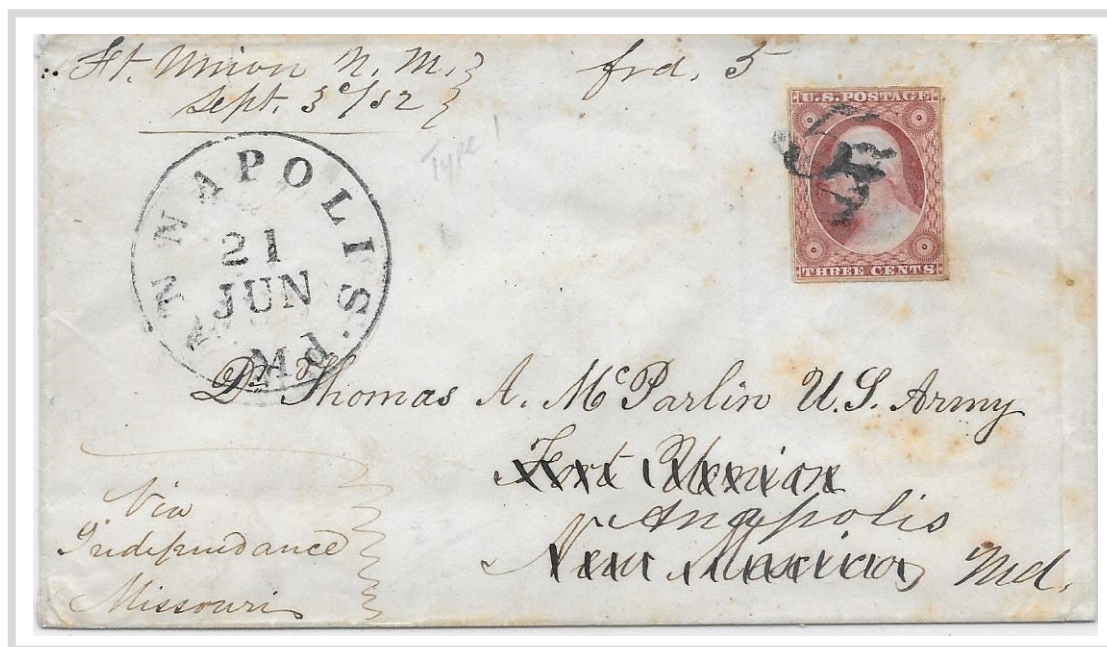 Ft. Union N. M.
Sept. 3º/52
frd. 5
Type
U.S. POSTAGE
THREE CENTS
ANNAPOLIS. Md.
21
JUN
Dr. Thomas A. McParlin U.S. Army
Fort Union
Anapolis
New Mexico Md.
Via
Independance
Missouri